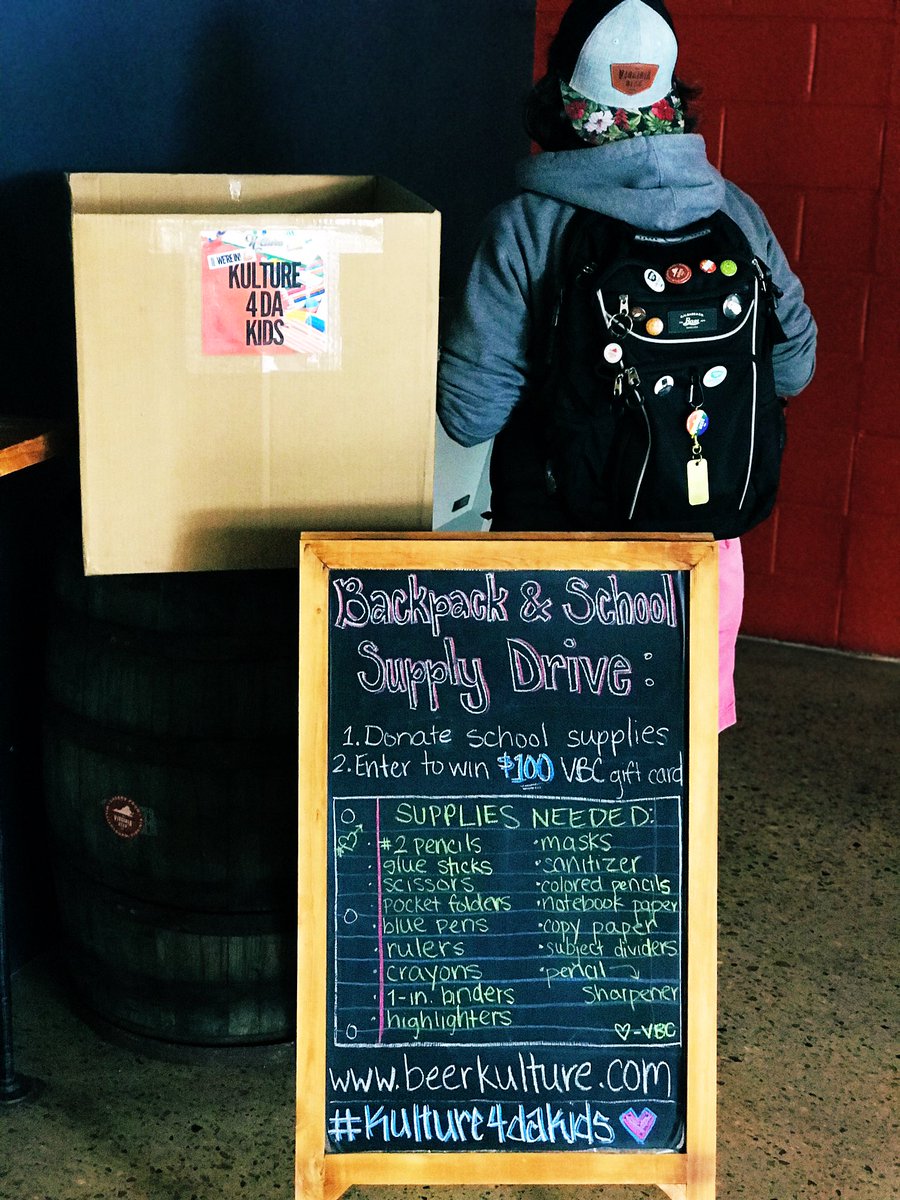 VIRGINIA
WE'RE IN!
KULTURE
4 DA
KIDS
Backpack & School
Supply Drive:
1. Donate school supplies
2. Enter to win $100 VBC gift card
SUPPLIES NEEDED:
#2 pencils
glue sticks
scissors
pocket folders
blue pens
rulers
crayons
1-in. binders
highlighters
• masks
• sanitizer
• colored pencils
• notebook paper
• copy paper
• subject dividers
• pencil →
sharpener
♡-VBC
www.beerkulture.com
#Kulture4dakids
VIRGINIA